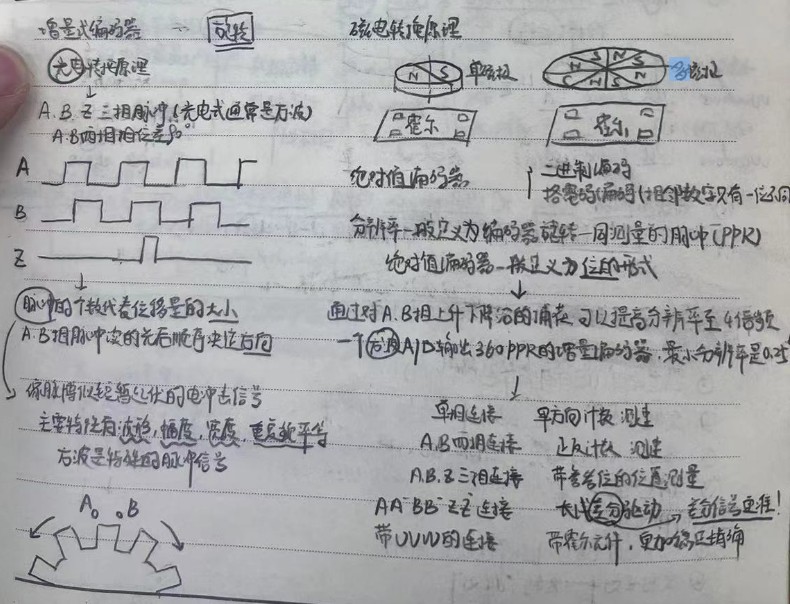 增量式编码器 — 旋转
光电转换原理
A.B.Z 三相脉冲(光电式通常是方波)
A.B两相相位差90°
A
B
Z
脉冲的个数代表位移量的大小
A.B相脉冲次的先后顺序决定方向
像脉搏似短暂起伏的电冲击信号
主要特性有波形,幅度,宽度,重复频率等
方波是特殊的脉冲信号
A B
磁电转换原理
N S 单磁极
N S N S N S N S 多磁极
霍尔 霍尔
绝对值编码器 二进制编码
格雷码编码(相邻数字只有一位不同
分辨率一般定义为编码器旋转一周测量的脉冲(PPR)
绝对值编码器一般定义为位的形式
通过对A.B相上升下降沿的捕获 可以提高分辨率至4倍频
一个方波A/D输出360PPR的增量编码器,最小分辨率是0.25°
单相连接 单方向计数 测速
A.B两相连接 正反计数 测速
A.B.Z三相连接 带参考位的位置测量
AA⁻BB⁻ZZ⁻连接 长线差分驱动 → 差分信号更准!
带UVW的连接 带霍尔元件,更加